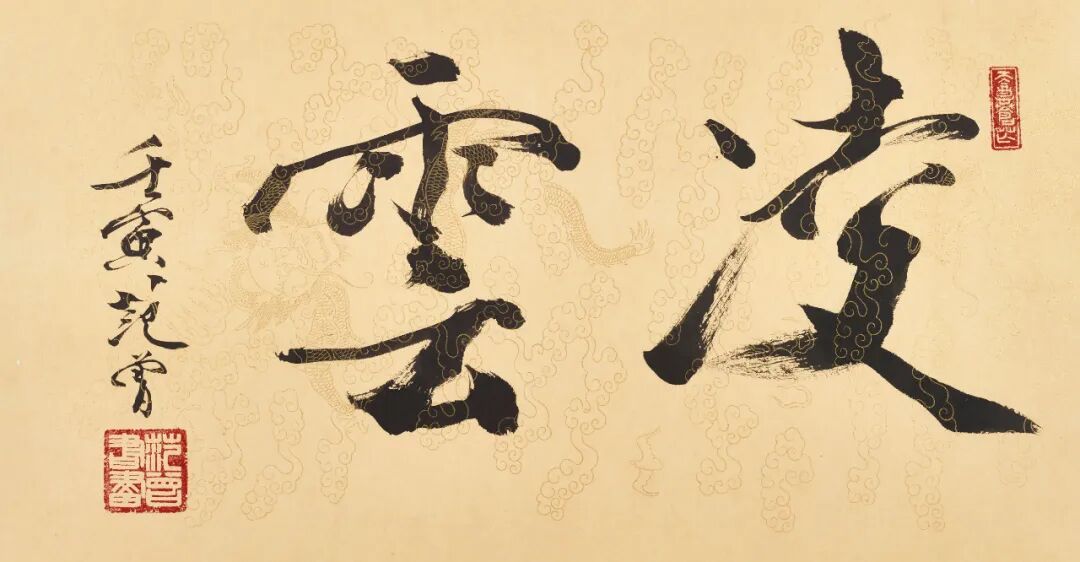 凌雲
壬寅 范曾
范曾書畫